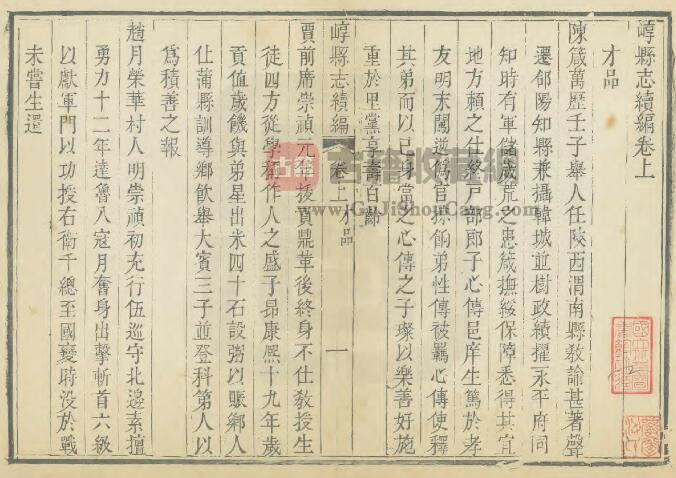 崞縣志續編卷上
才品
陳箴萬歷壬子舉人任陝西渭南縣教諭甚著聲
遷郃陽知縣兼攝韓城並樹政績擢永平府同
知時有軍儲歲荒之患箴撫綏保障悉得其宜
地方賴之仕終戸部郎子心傳邑庠生篤於孝
友明末闖逆爲官掠餉弟性傳被羈心傳使釋
其弟而以已身當之心傳之子璨以樂善好施
重於里黨享壽百齡
崞縣志續編
卷上才品
一
賈前席崇禎元年拔貢鼎革後終身不仕教授生
徒四方從學稱作人之盛子昻康熙十九年歲
貢值歲饑與弟星出米四十石設粥以賑鄉人
仕蒲縣訓導鄉飲舉大賓三子並登科第人以
爲積善之報
趙月榮華村人明崇禎初充行伍巡守北邊素擅
勇力十二年達魯八寇月奮身出擊斬首六級
以獻軍門以功授右衛千總至國變時没於戰
未嘗生還
古籍收藏網
www.GuJiShouCang.com